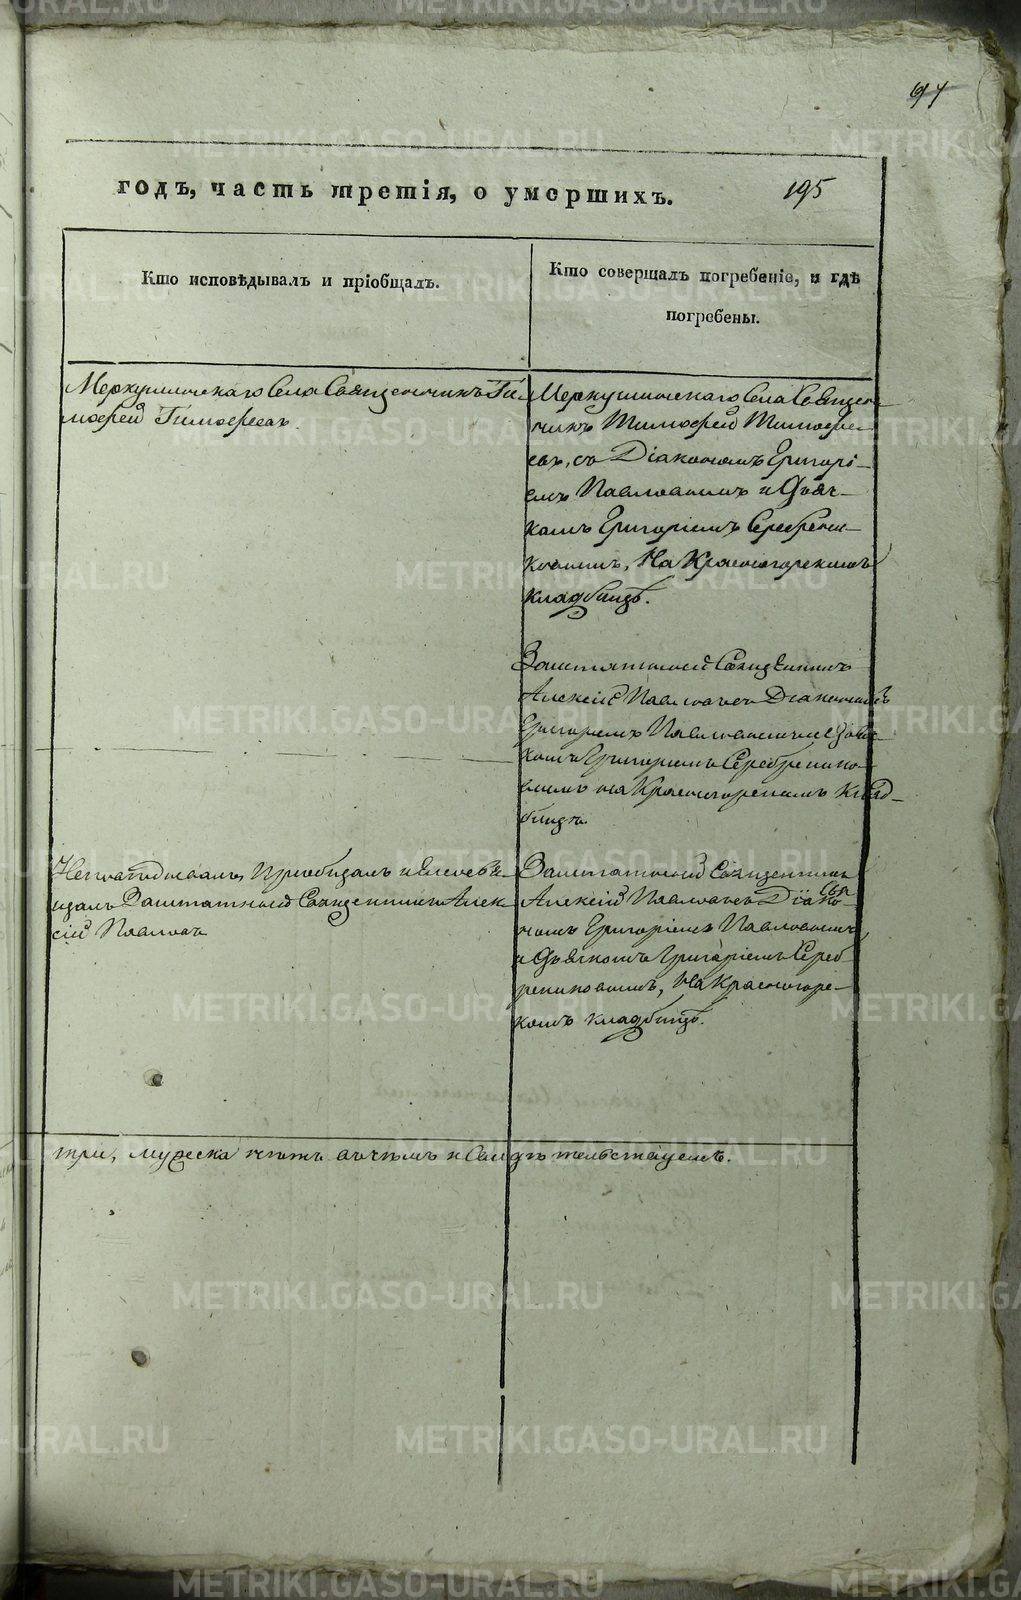 97
годъ, часть третія, о умершихъ. 195
Кто исповѣдывалъ и пріобщалъ.
Кто совершалъ погребеніе, и гдѣ
погребены.
Меркушинскаго Села Священникъ Ти-
мофей Тимофеевъ.
Меркушинскаго Села Священ-
никъ Тимофей Тимофе-
евъ, съ Діакономъ Григорі-
емъ Павловымъ и Дьяч-
комъ Григоріемъ Серебрени-
ковымъ, На Красногорскомъ
кладбищѣ.
Заштатный Священникъ
Алексій Павловъ съ Діакономъ
Григоріемъ Павловымъ и Дьяч-
комъ Григоріемъ Серебренико-
вымъ на Красногорскомъ клад-
бищѣ.
Исповѣдывалъ, Пріобщалъ и Елеосвя-
щалъ Заштатный Священникъ Алек-
сій Павловъ
Заштатный Священникъ
Алексій Павловъ съ Діако-
номъ Григоріемъ Павловымъ,
и Дьячкомъ Григоріемъ Сереб-
рениковымъ, На Красногорс-
комъ кладбищѣ.
три, мужеска въ чемъ и Свидѣтельствуемъ.
METRIKI.GASO-URAL.RU